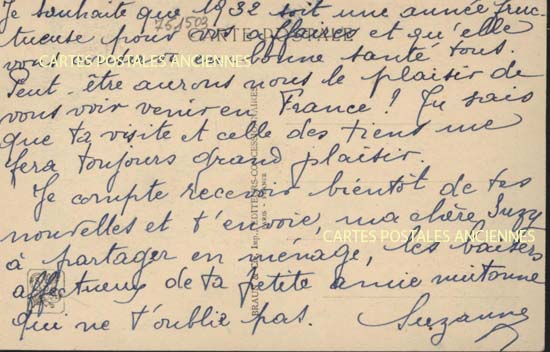 Je souhaite que 1932 soit une année fruc-
tueuse pour vos affaires et qu'elle
vous en bonne santé tous.
Peut-être aurons nous le plaisir de
vous voir venir en France ! Tu sais
que ta visite et celle des tiens me
fera toujours grand plaisir.
Je compte recevoir bientôt de tes
nouvelles et t'envoie, ma chère Suzy
à partager en ménage, les baisers
affectueux de ta petite amie
qui ne t'oublie pas. Suzanne
751503
CARTE POSTALE
CARTES POSTALES ANCIENNES
CARTES POSTALES ANCIENNES
BRAUN & Cie, Imp. EDITEURS-CONCESSIONNAIRES
PARIS